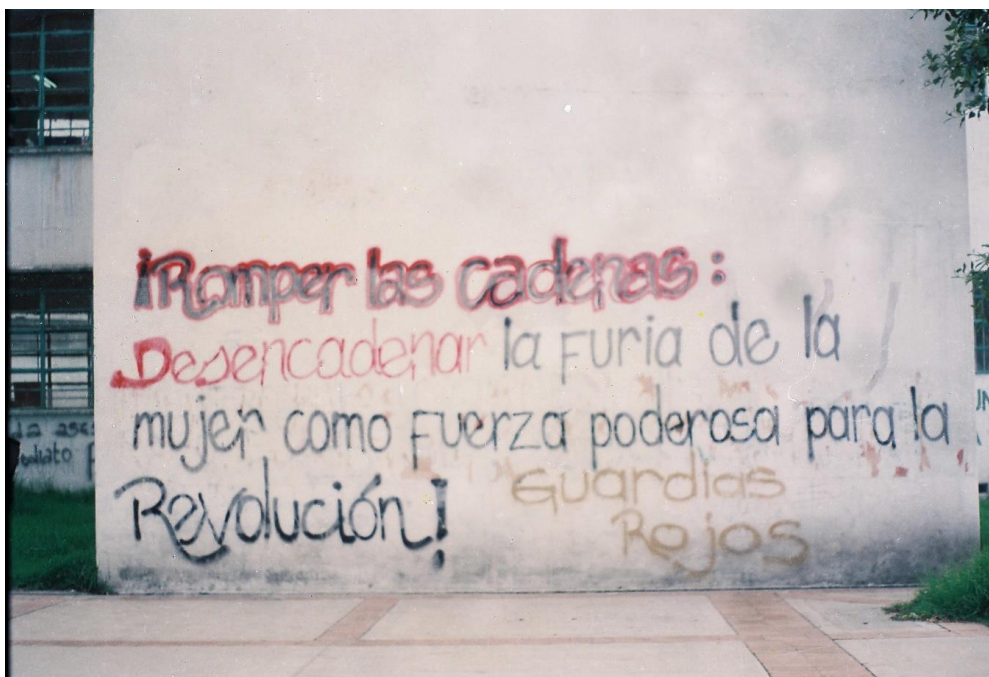 ¡Romper las cadenas:
Desencadenar la Furia de la
mujer como Fuerza poderosa para la
Revolución!
Guardias
Rojos